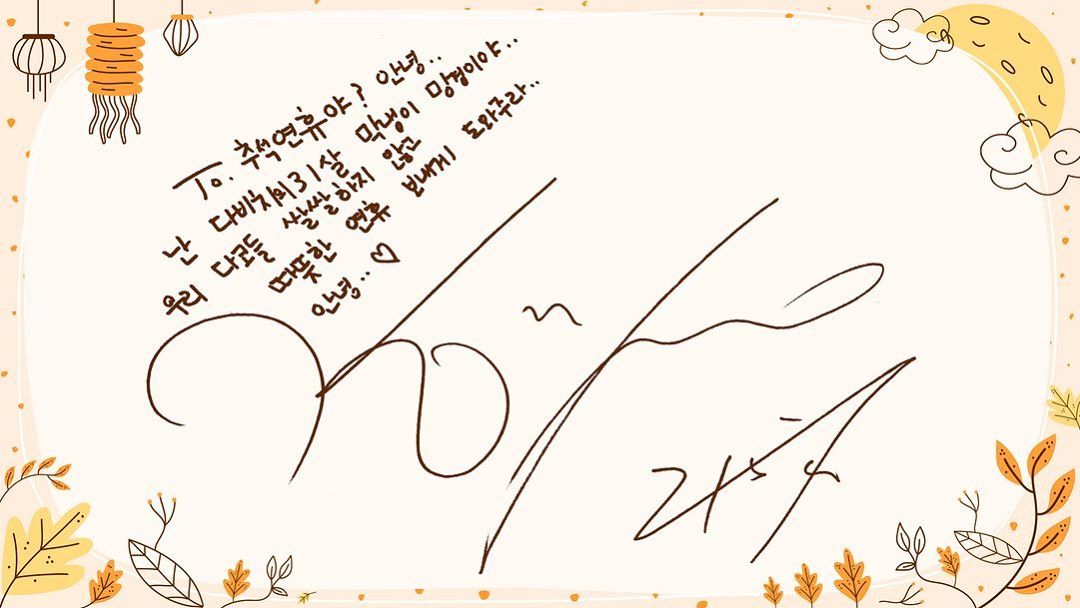 To. 추석연휴야? 안녕..
난 다비치의 31살 막냉이 망경이야..
우리 다코들 쌀쌀하지 않고
따뜻한 연휴 보내게 도와주라..
안녕..♡